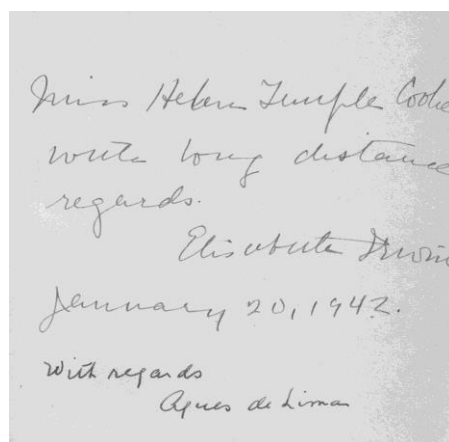 Miss Helen Temple Cooke
with long distance
regards.
Elisabeth Irwin
January 20, 1942.
With regards
Agnes de Lima